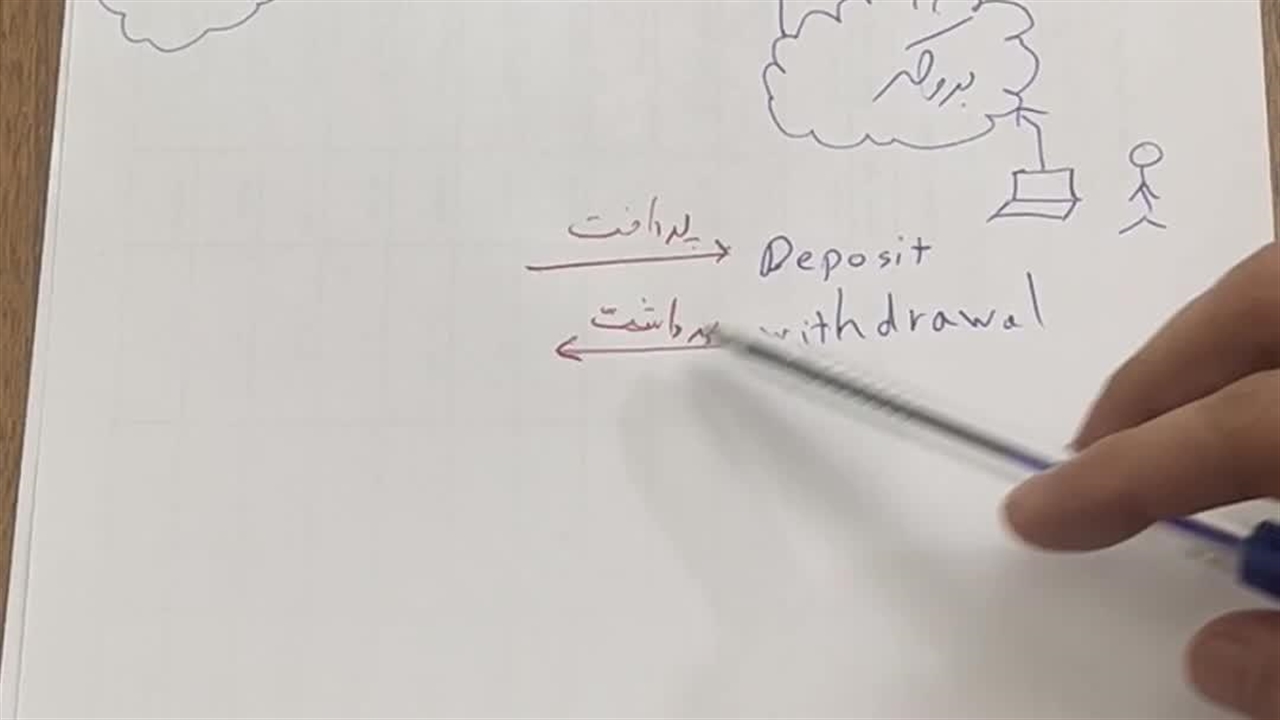 بروکر
پرداخت
Deposit
برداشت
withdrawal